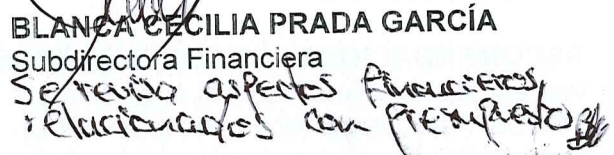 BLANCA CECILIA PRADA GARCÍA
Subdirectora Financiera
Se revisa aspectos financieros,
relacionados con presupuesto